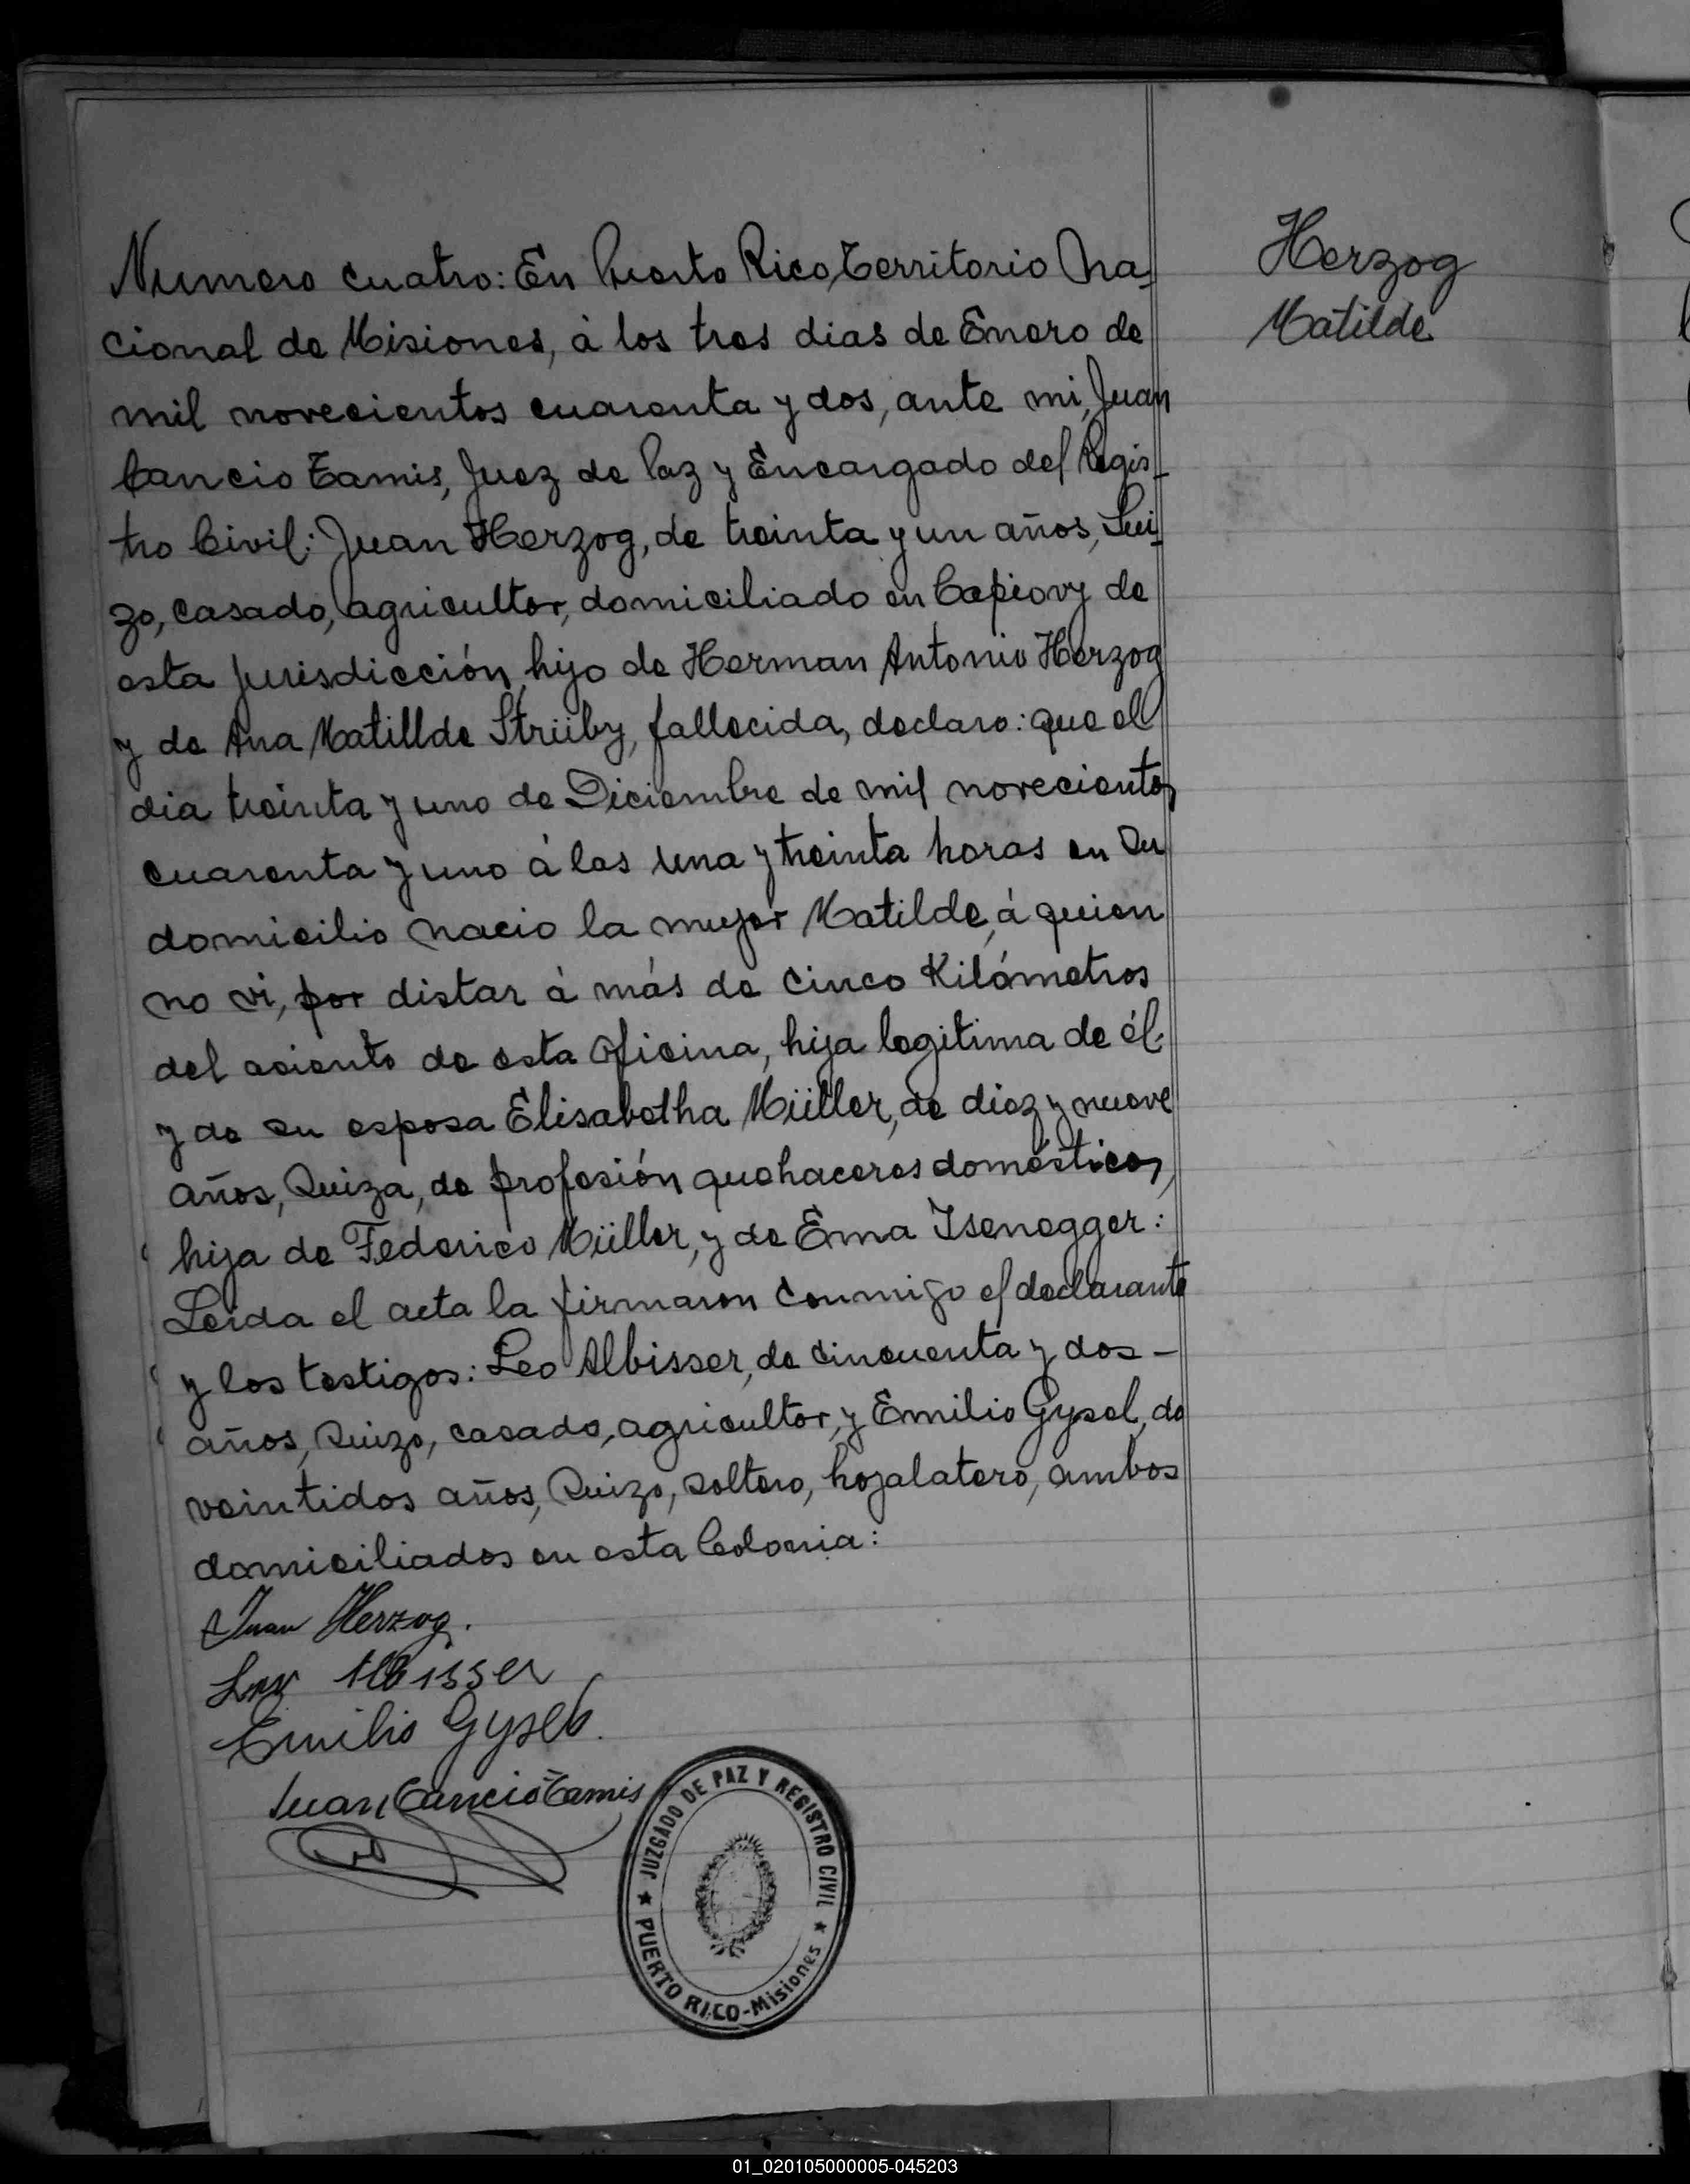 Numero cuatro: En Puerto Rico, Territorio Na-
cional de Misiones, à los tres dias de Enero de
mil novecientos cuarenta y dos, ante mi, Juan
Cancio Tamis, Juez de Paz y Encargado del Regis-
tro Civil: Juan Herzog, de treinta y un años, Sui-
zo, casado, agricultor, domiciliado en Capiovy de
esta jurisdicción, hijo de Herman Antonio Herzog
y de Ana Matillde Strüby, fallecida, declaro: que el
dia treinta y uno de Diciembre de mil novecientos
cuarenta y uno à las una y treinta horas en su
domicilio nacio la mujer Matilde, à quien
no vi, por distar à más de cinco Kilómetros
del asiento de esta oficina, hija legitima de él
y de su esposa Elisabetha Müller, de diez y nueve
años, Suiza, de profesión quehaceres domésticos,
hija de Federico Müller, y de Ema Isenegger:
Leida el acta la firmaron conmigo el declarante
y los testigos: Leo Albisser, de cincuenta y dos -
años, Suizo, casado, agricultor, y Emilio Gysel, de
veintidos años, Suizo, soltero, hojalatero, ambos
domiciliados en esta Colonia:
Juan Herzog.
Leo Albisser
Emilio Gysel.
Juan Cancio Tamis
Herzog
Matilde
JUZGADO DE PAZ Y REGISTRO CIVIL
PUERTO RICO-Misiones
01_020105000005-045203